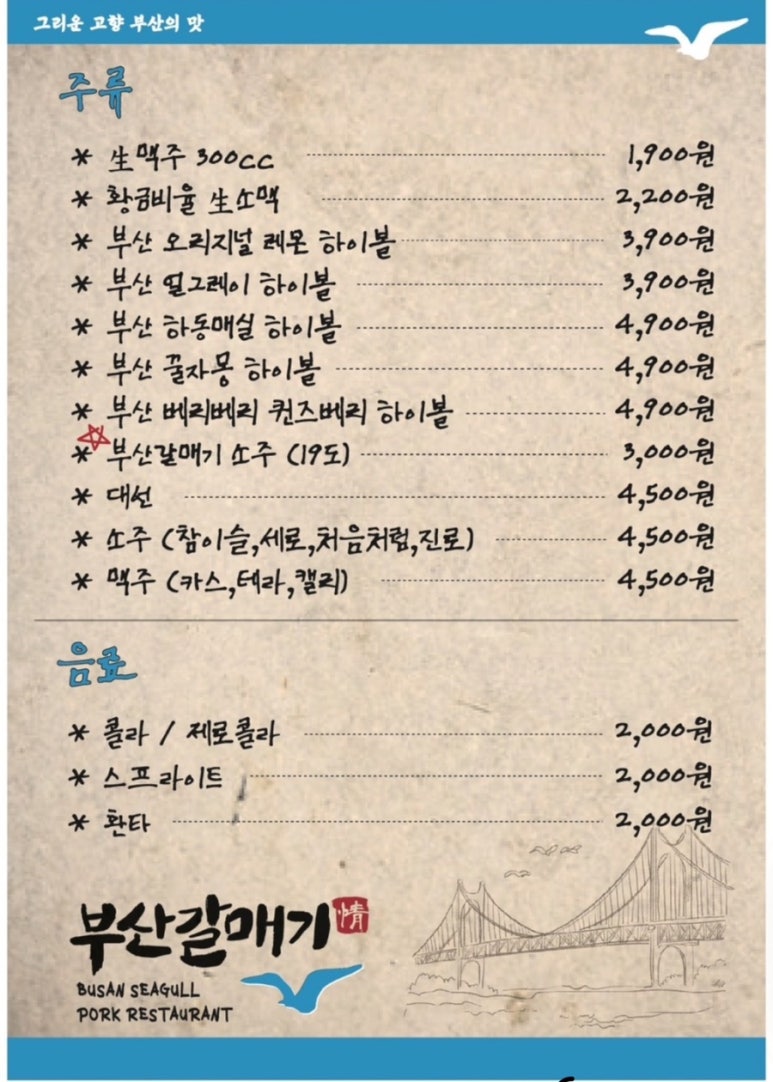 그리운 고향 부산의 맛
주류
* 生맥주 300cc 1,900원
* 황금비율 生소맥 2,200원
* 부산 오리지널 레몬 하이볼 3,900원
* 부산 얼그레이 하이볼 3,900원
* 부산 하동매실 하이볼 4,900원
* 부산 꿀자몽 하이볼 4,900원
* 부산 베리베리 퀸즈베리 하이볼 4,900원
* 부산갈매기 소주 (19도) 3,000원
* 대선 4,500원
* 소주 (참이슬,새로,처음처럼,진로) 4,500원
* 맥주 (카스,테라,켈리) 4,500원
음료
* 콜라 / 제로콜라 2,000원
* 스프라이트 2,000원
* 환타 2,000원
부산갈매기 情
BUSAN SEAGULL
PORK RESTAURANT